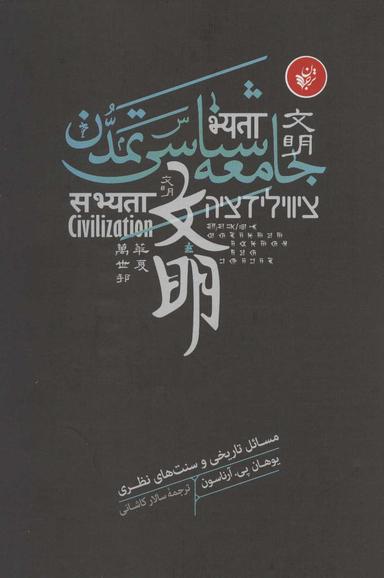 ترجمان
جامعه‌شناسی تمدّن
भ्यता
文明
सभ्यता
文明
ציוויליזציה
Civilization
文明
華夏
萬世邦
مسائل تاریخی و سنت‌های نظری
یوهان پی. آرناسون
ترجمهٔ سالار کاشانی